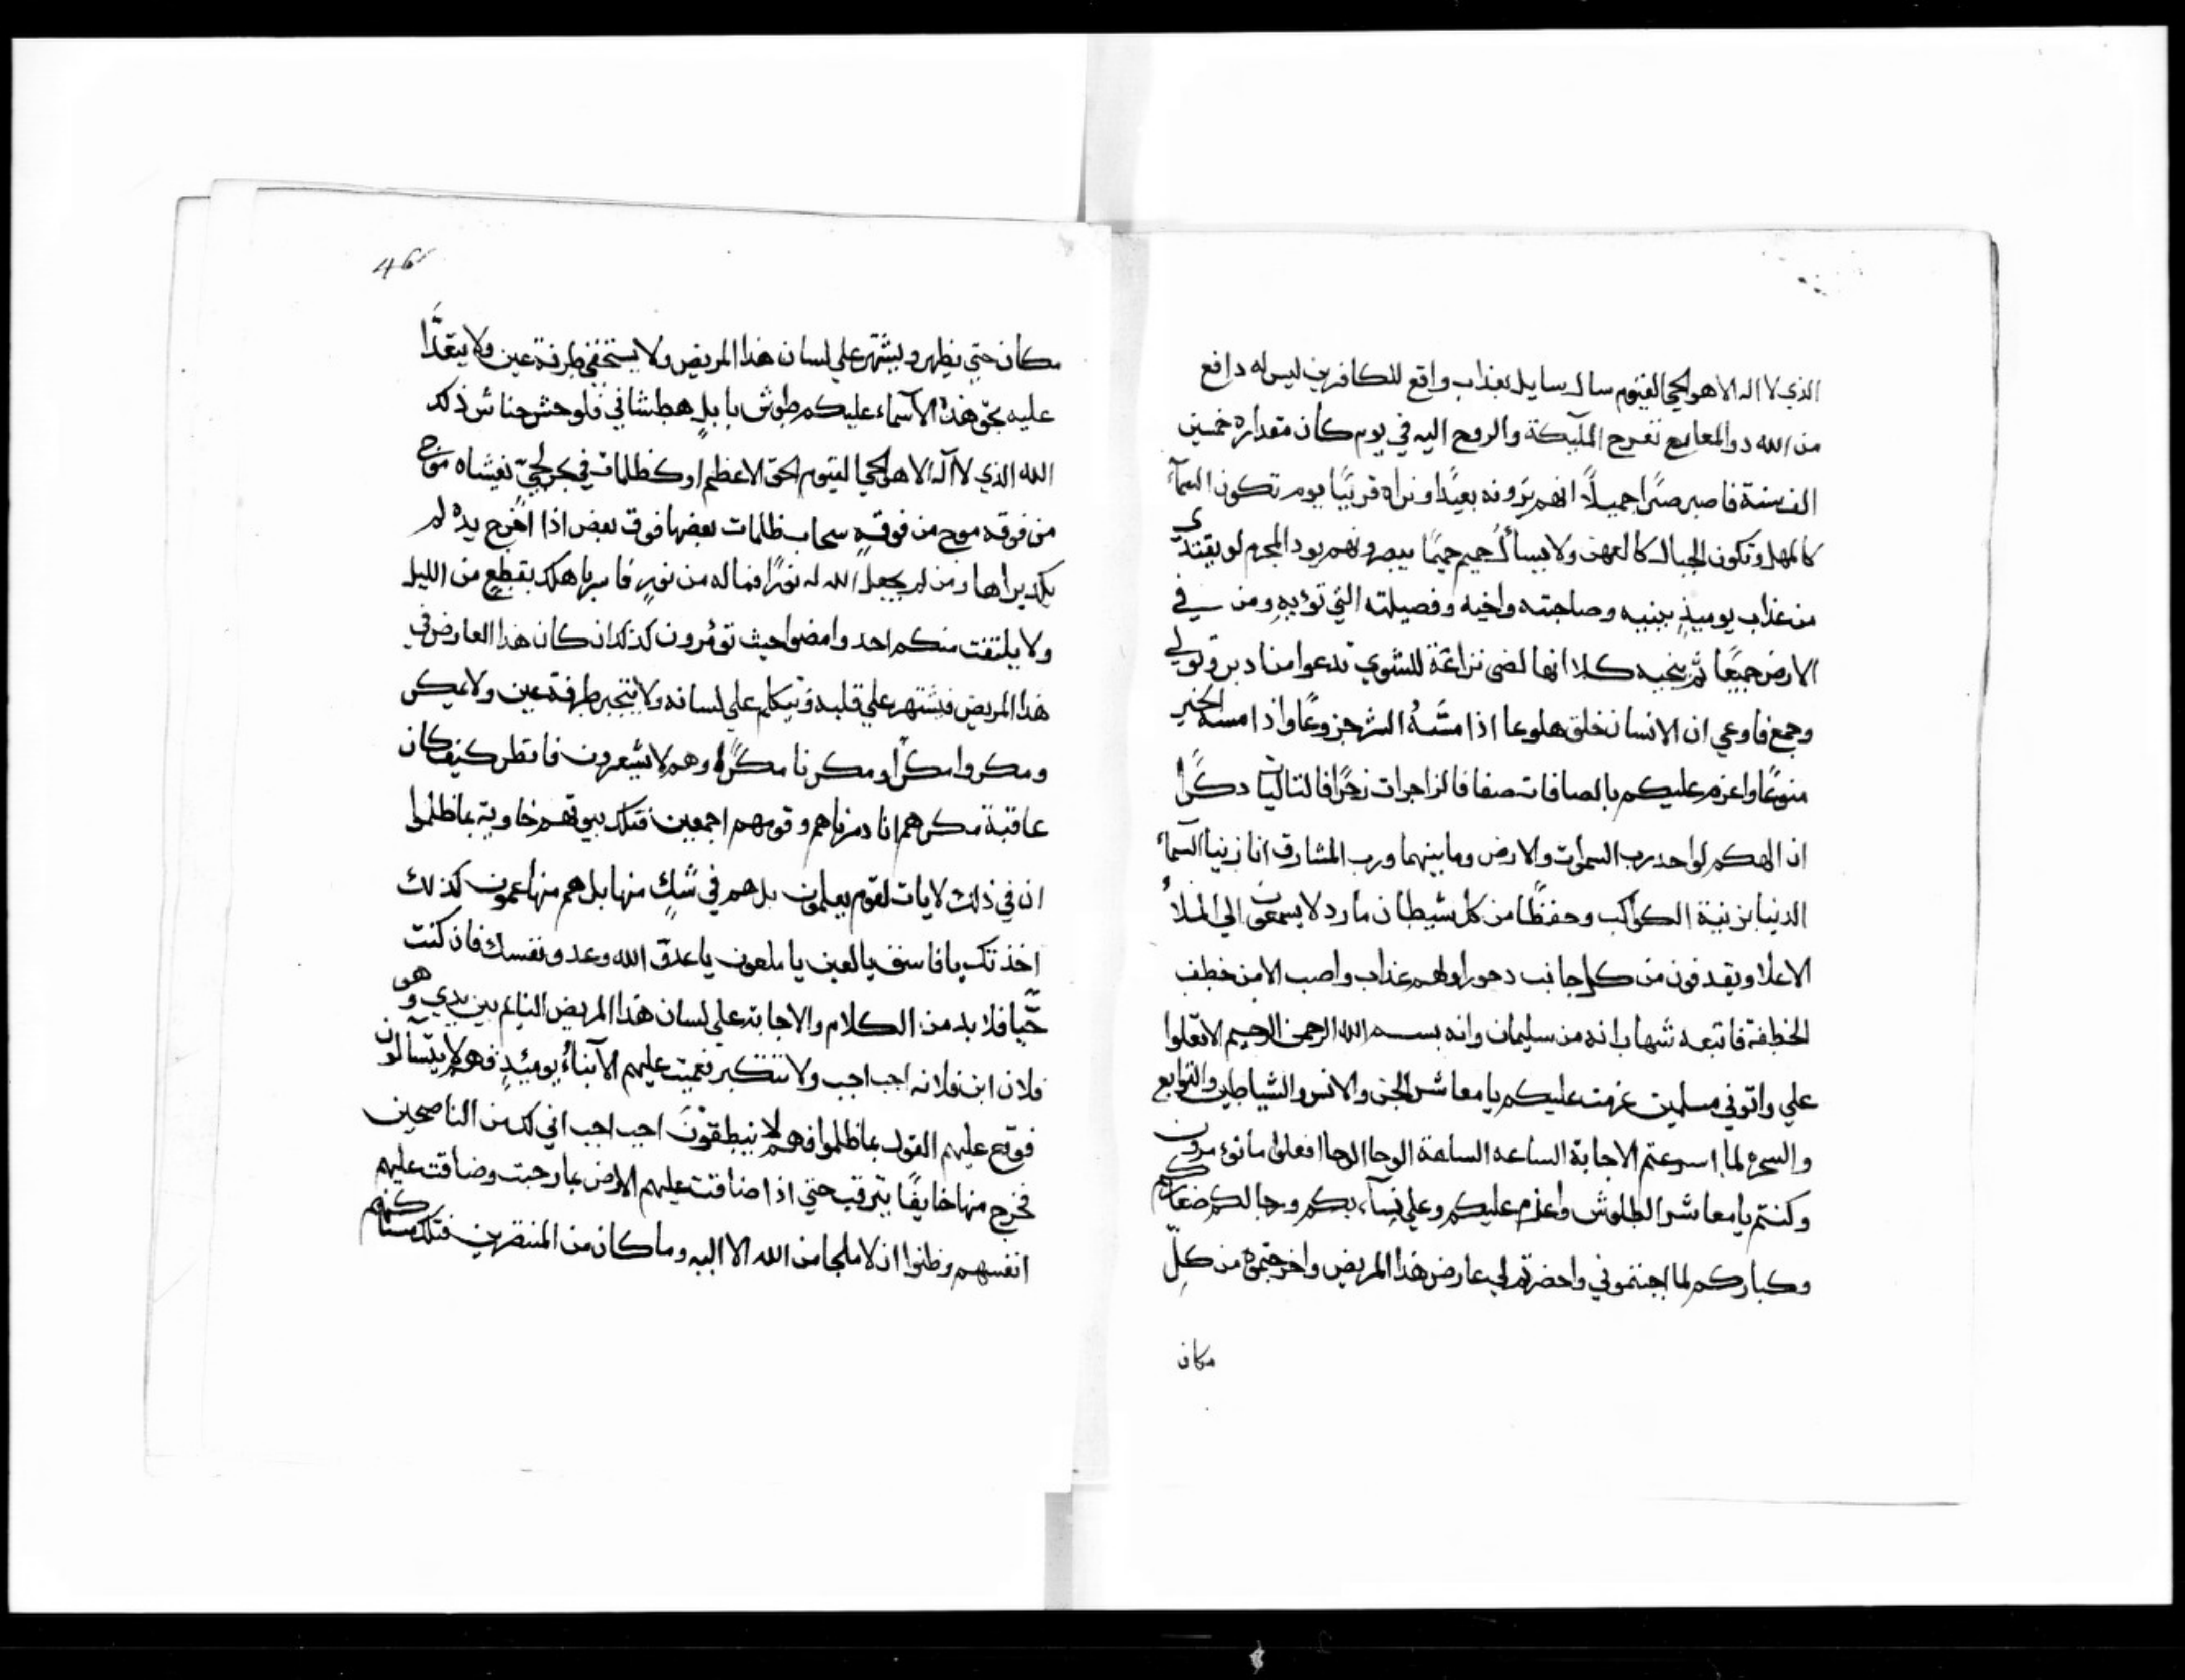 الذي لا اله الا هو الحي القيوم سال سايل بعذاب واقع للكافرين ليس له دافع
من الله ذو المعارج تعرج الملٓيكة والروح اليه في يوم كان مقداره خمسين
الف سنة فاصبر صبرًا جميلاً انهم يرونه بعيدًا ونراه قريبًا يوم تكون السمآء
كالمهل وتكون الجبال كالعهن ولا يسأل حميم حميمًا يبصرونهم يود المجرم لو يفتدي
من عذاب يوميذٍ ببنيه وصاحبته واخيه وفصيلته التي تؤيه ومن في
الارض جميعًا ثم ينجيه كلا انها لضى نزاعة للشوي تدعوا من ادبر وتولي
وجمع فاوعي ان الانسان خلق هلوعا اذا مسَّهُ الشر جزوعًا واذا مسه الخير
منوعًا واعزم عليكم بالصافات صفا فالزاجرات زجرًا فالتاليات دكرًا
ان الهكم لواحد رب السموات والارض وما بينهما ورب المشارق انا زينا السمآء
الدنيا بزينة الكواكب وحفظًا من كل شيطان مارد لا يسمعون الي الملاءُ
الاعلا ويقدفون من كل جانب دحورا ولهم عذاب واصب الا من خطف
الخطفة فاتبعه شهاب انه من سليمان وانه بسم الله الرحمن الرحيم الا تعلوا
علي واتوني مسلمين عزمت عليكم يا معاشر الجن والانس والشياطين والتوابع
والسحره لما اسرعتم الاجابة الساعه الساعة الوحا الوحا افعلوا ما تؤمرون
وكنتم يا معاشر الطلوش واعزم عليكم وعلي نسآءيكم ورجالكم ضعاركم
وكباركم لما اجبتموني واحضرتم لي عارض هذا المريض واخرجتموه من كلِّ
مكان
46
مكان حتي يظهر ويشتهر علي لسان هذا المريض ولا يستخفي طرفة عين ولا يتعدَّا
عليه بحق هذه الاسمآء عليكم طوش بابلٍ هطشافي فلوحش حناش ذلك
الله الذي لا اله الا هو الحي القيوم الحق الاعظم او كظلمات في بحر لجيّ تغشاه موج
من فوقه موج من فوقهِ سحاب ظلمات بعضها فوق بعض اذا اخرج يده لم
يكد يراها ومن لم يجعل الله له نورًا فما له من نورٍ فاسر باهلك بقطعٍ من الليل
ولا يلتفت منكم احد وامضوا حيث تؤمرون كذلك ان كان هذا العارض في
هذا المريض فيشتهر علي قلبه ويتكلم علي لسانه ولا يتجبر طرفة عين ولا يمكن
ومكروا مكرًا ومكرنا مكرًا وهم لا يشعرون فانظر كيف كان
عاقبة مكرهم انا دمرناهم وقومهم اجمعين فتلك بيوتهم خاوية بما ظلموا
ان في ذلك لايات لقوم يعلمون بل هم في شكٍ منها بل هم منها عمون كذلك
اخذتك يا فاسق يا لعين يا ملعون يا عدوّ الله وعدو نفسك فان كنت
حيًّا فلا بد من الكلام والاجابة علي لسان هذا المريض النايم بين يدي وهو
فلان ابن فلانه اجب اجب ولا تتكبر فعميت عليهم الآنبآءُ يوميٕذٍ فهم لا يتسآلون
فوقع عليهم القول بما ظلموا فهم لا ينطقون اجب اجب اني لك من الناصحين
فخرج منها خايفًا يترقب حتي اذا ضاقت عليهم الارض بما رحبت وضاقت عليهم
انفسهم وظنوا ان لا ملجا من الله الا اليه وما كان من المنتصرين فتلك مساكنهم